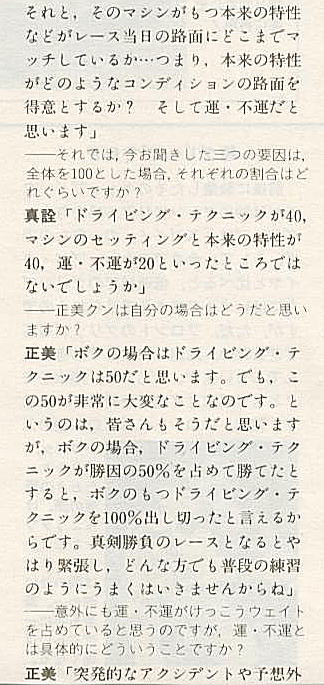 それと，そのマシンがもつ本来の特性
などがレース当日の路面にどこまでマ
ッチしているか…つまり，本来の特性
がどのようなコンディションの路面を
得意とするか？　そして運・不運だと
思います」
――それでは，今お聞きした三つの要因は，
全体を100とした場合，それぞれの割合はど
れぐらいですか？
真詮「ドライビング・テクニックが40，
マシンのセッティングと本来の特性が
40，運・不運が20といったところでは
ないでしょうか」
――正美クンは自分の場合はどうだと思い
ますか？
正美「ボクの場合はドライビング・テ
クニックは50だと思います。でも，こ
の50が非常に大変なことなのです。と
いうのは，皆さんもそうだと思います
が，ボクの場合，ドライビング・テク
ニックが勝因の50％を占めて勝てたと
すると，ボクのもつドライビング・テ
クニックを100％出し切ったと言えるか
らです。真剣勝負のレースとなるとや
はり緊張し，どんな方でも普段の練習
のようにうまくはいきませんからね」
――意外にも運・不運がけっこうウェイト
を占めていると思うのですが，運・不運と
は具体的にどういうことですか？
正美「突発的なアクシデントや予想外